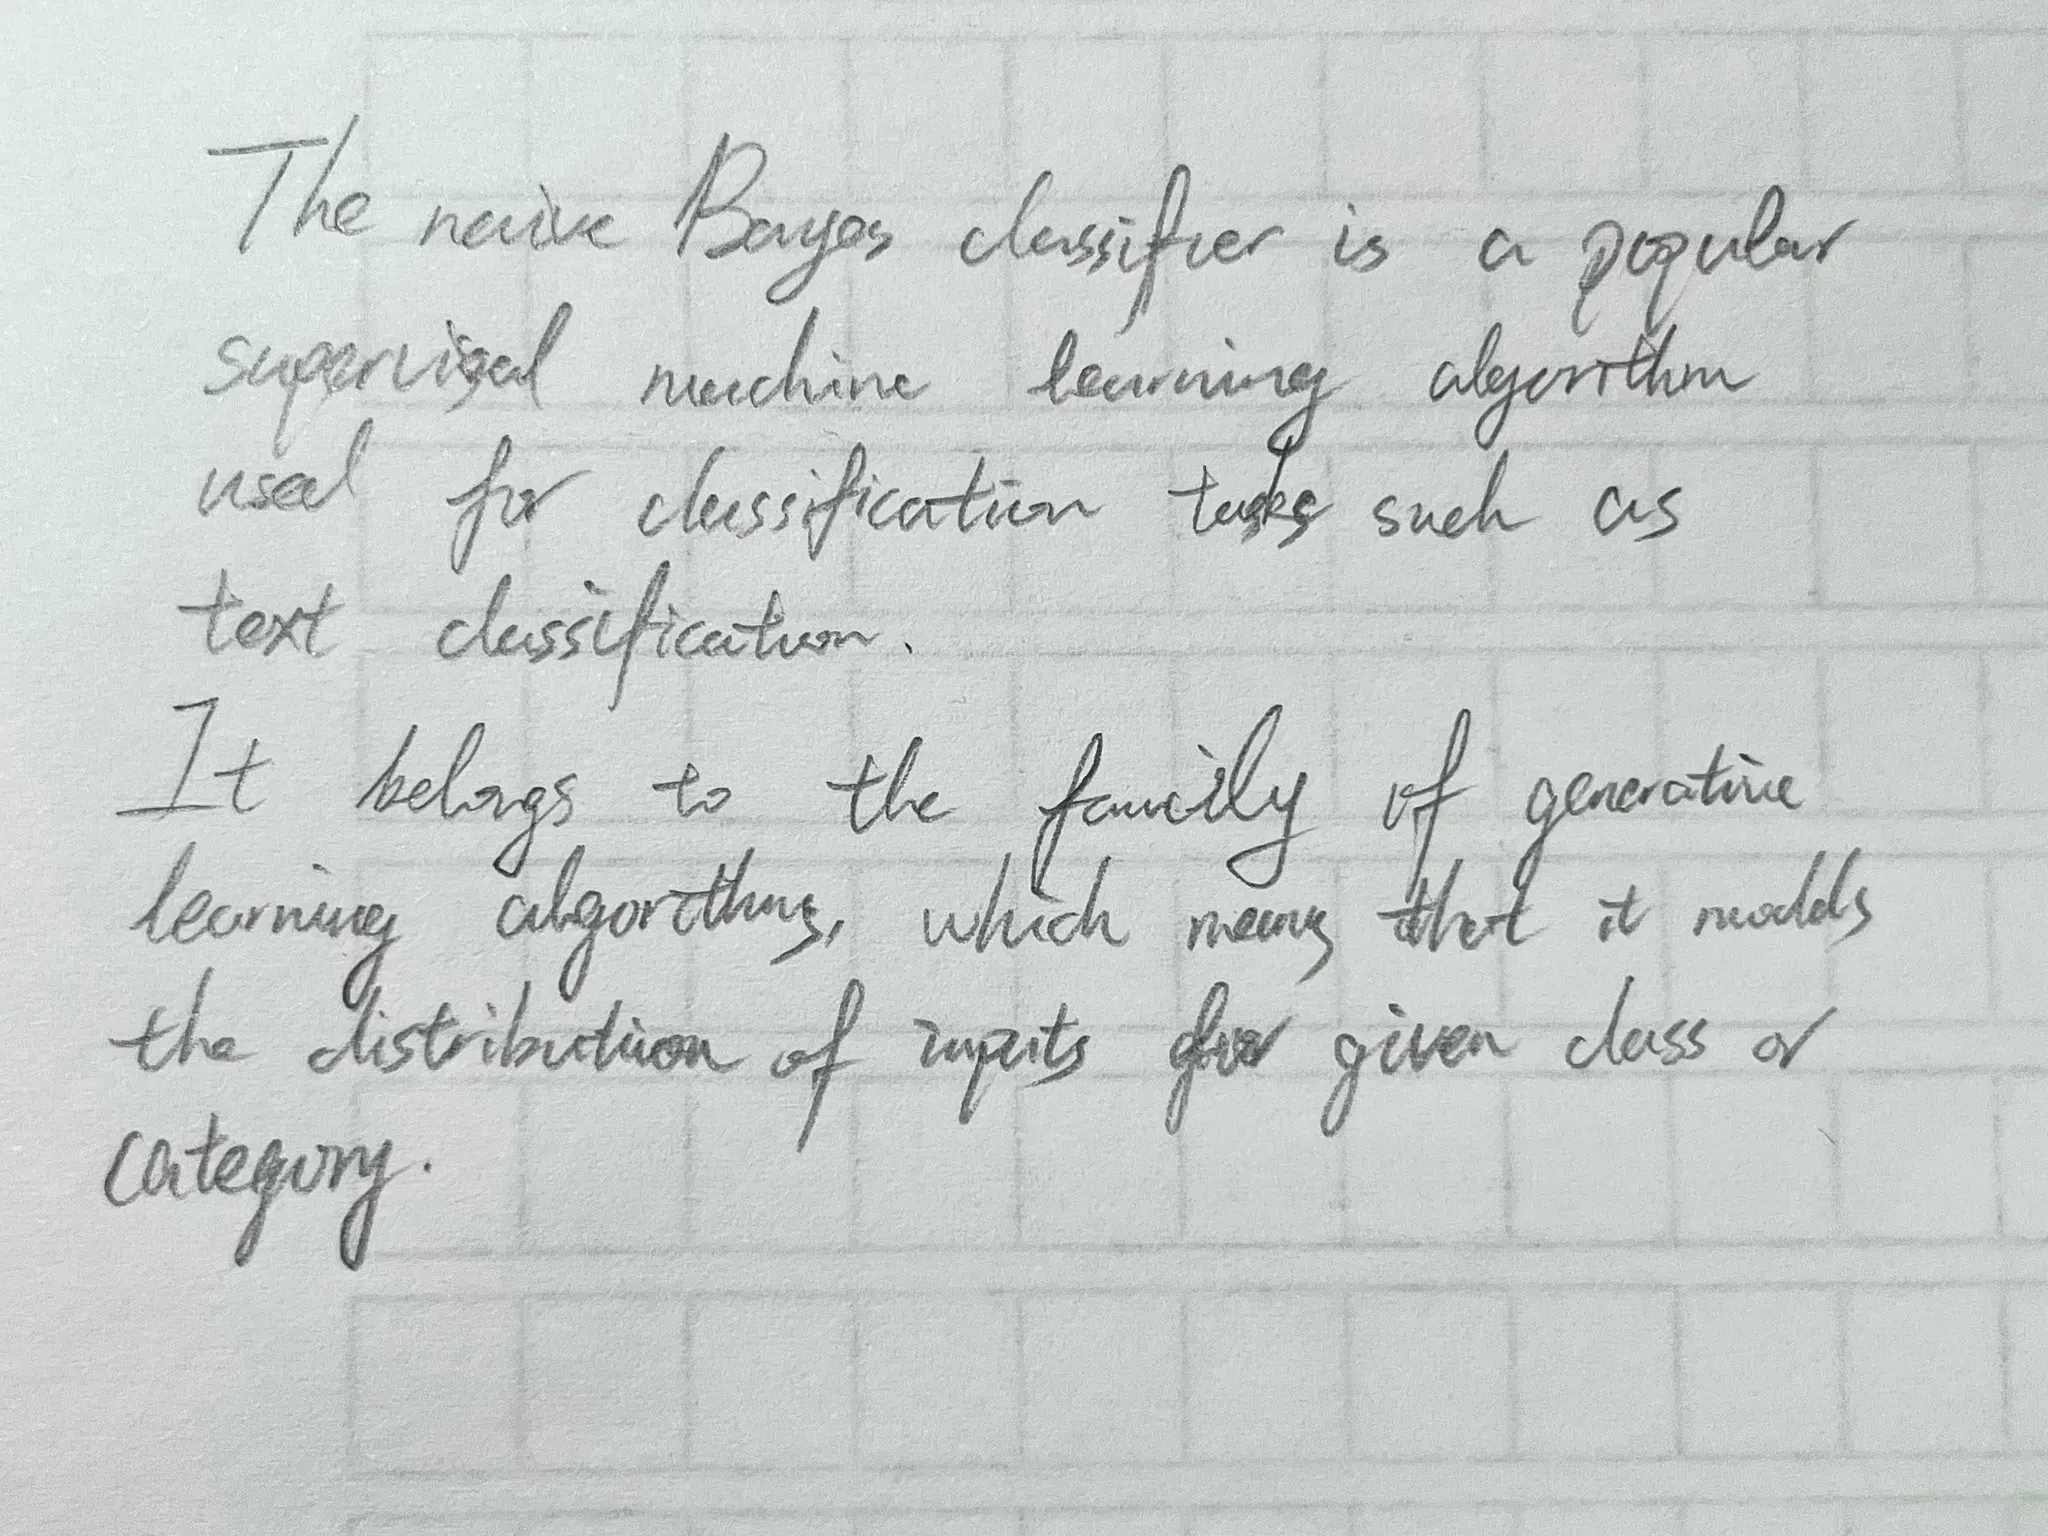 The naive Bayes classifier is a popular
supervised machine learning algorithm
used for classification tasks such as
text classification.
It belongs to the family of generative
learning algorithms, which means that it models
the distribution of inputs for given class or
category.